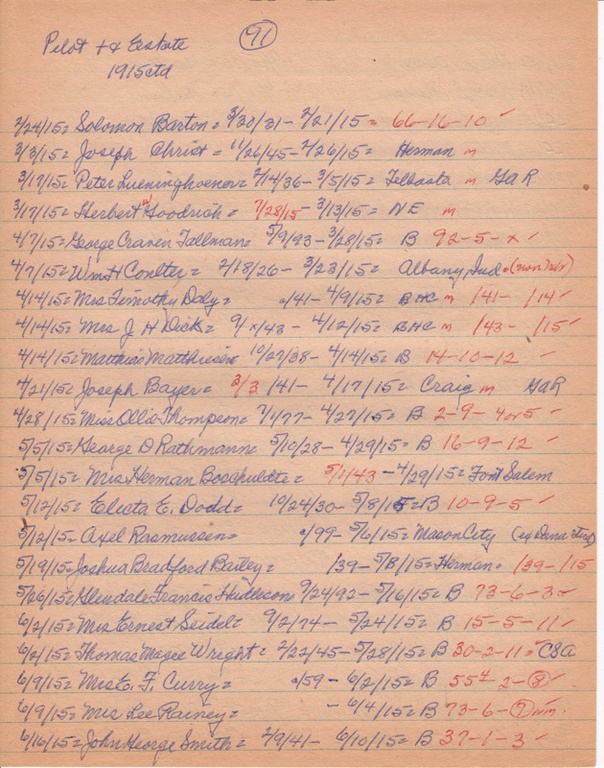 Pilot + & Eestate (91)
1915ctd
2/24/15= Solomon Barton = 3/20/31 - 2/21/15= 66-16-10 ✓
3/3/15= Joseph Christ = 11/26/45- 2/26/15= Herman m
3/17/15= Peter Lueninghoener= 2/14/36- 3/5/15= m GaR
3/17/15= Herbert W Goodrich= 7/28/15- 3/13/15= NE m
4/7/15= George Craven Tallman= 5/9/93- 3/28/15= B 92-5-x ✓
4/7/15= Wm H Coulter= 2/18/26- 3/23/15= Albany, Ind.
4/14/15= Mrs Timothy Daly= /41- 4/9/15= BHC m /41- /14 ✓
4/14/15= Mrs J H Dick= 9/x/43 - 4/12/15= BHC m /43- /15 ✓
4/14/15= Matthias Matthiesen 10/27/38- 4/14/15= B 14-10-12 ✓
4/21/15= Joseph Bayer= 3/3 /41- 4/17/15= Craig m GaR
4/28/15= Miss Ollie Thompson= 7/1/77- 4/27/15= B 2-9-4or5 ✓
5/5/15= George D Rathmann 5/10/28- 4/29/15= B 16-9-12 ✓
5/5/15= Mrs. Herman Boschuldte= 5/1/43 - 4/29/15= Font Salem
5/12/15= Electa E. Dodd= 10/24/30- 5/8/15= B 10-9-5 ✓
5/12/15= Axel Rasmussen= /99- 5/6/15= Mason City
5/19/15= Joshua Bradford Bailey= /39- 5/8/15= Herman= /39- /15
5/26/15= Glendale Francis 9/24/92- 5/16/15= B 73-6-3 ✓
6/2/15= Mrs Ernest Seidel= 9/2/74- 5/24/15= B 15-5-11 ✓
6/2/15= Thomas Magee Wright= 2/22/45- 5/28/15= B 30-2-11= CSA
6/9/15= Mrs E. F. Curry= /59 - 6/2/15= B 55-2-(8) ✓
6/9/15= Mrs Lee Rainey= - 6/4/15= B 73-6-(7)
6/16/15= John George Smith= 2/9/41- 6/10/15= B 37-1-3 ✓